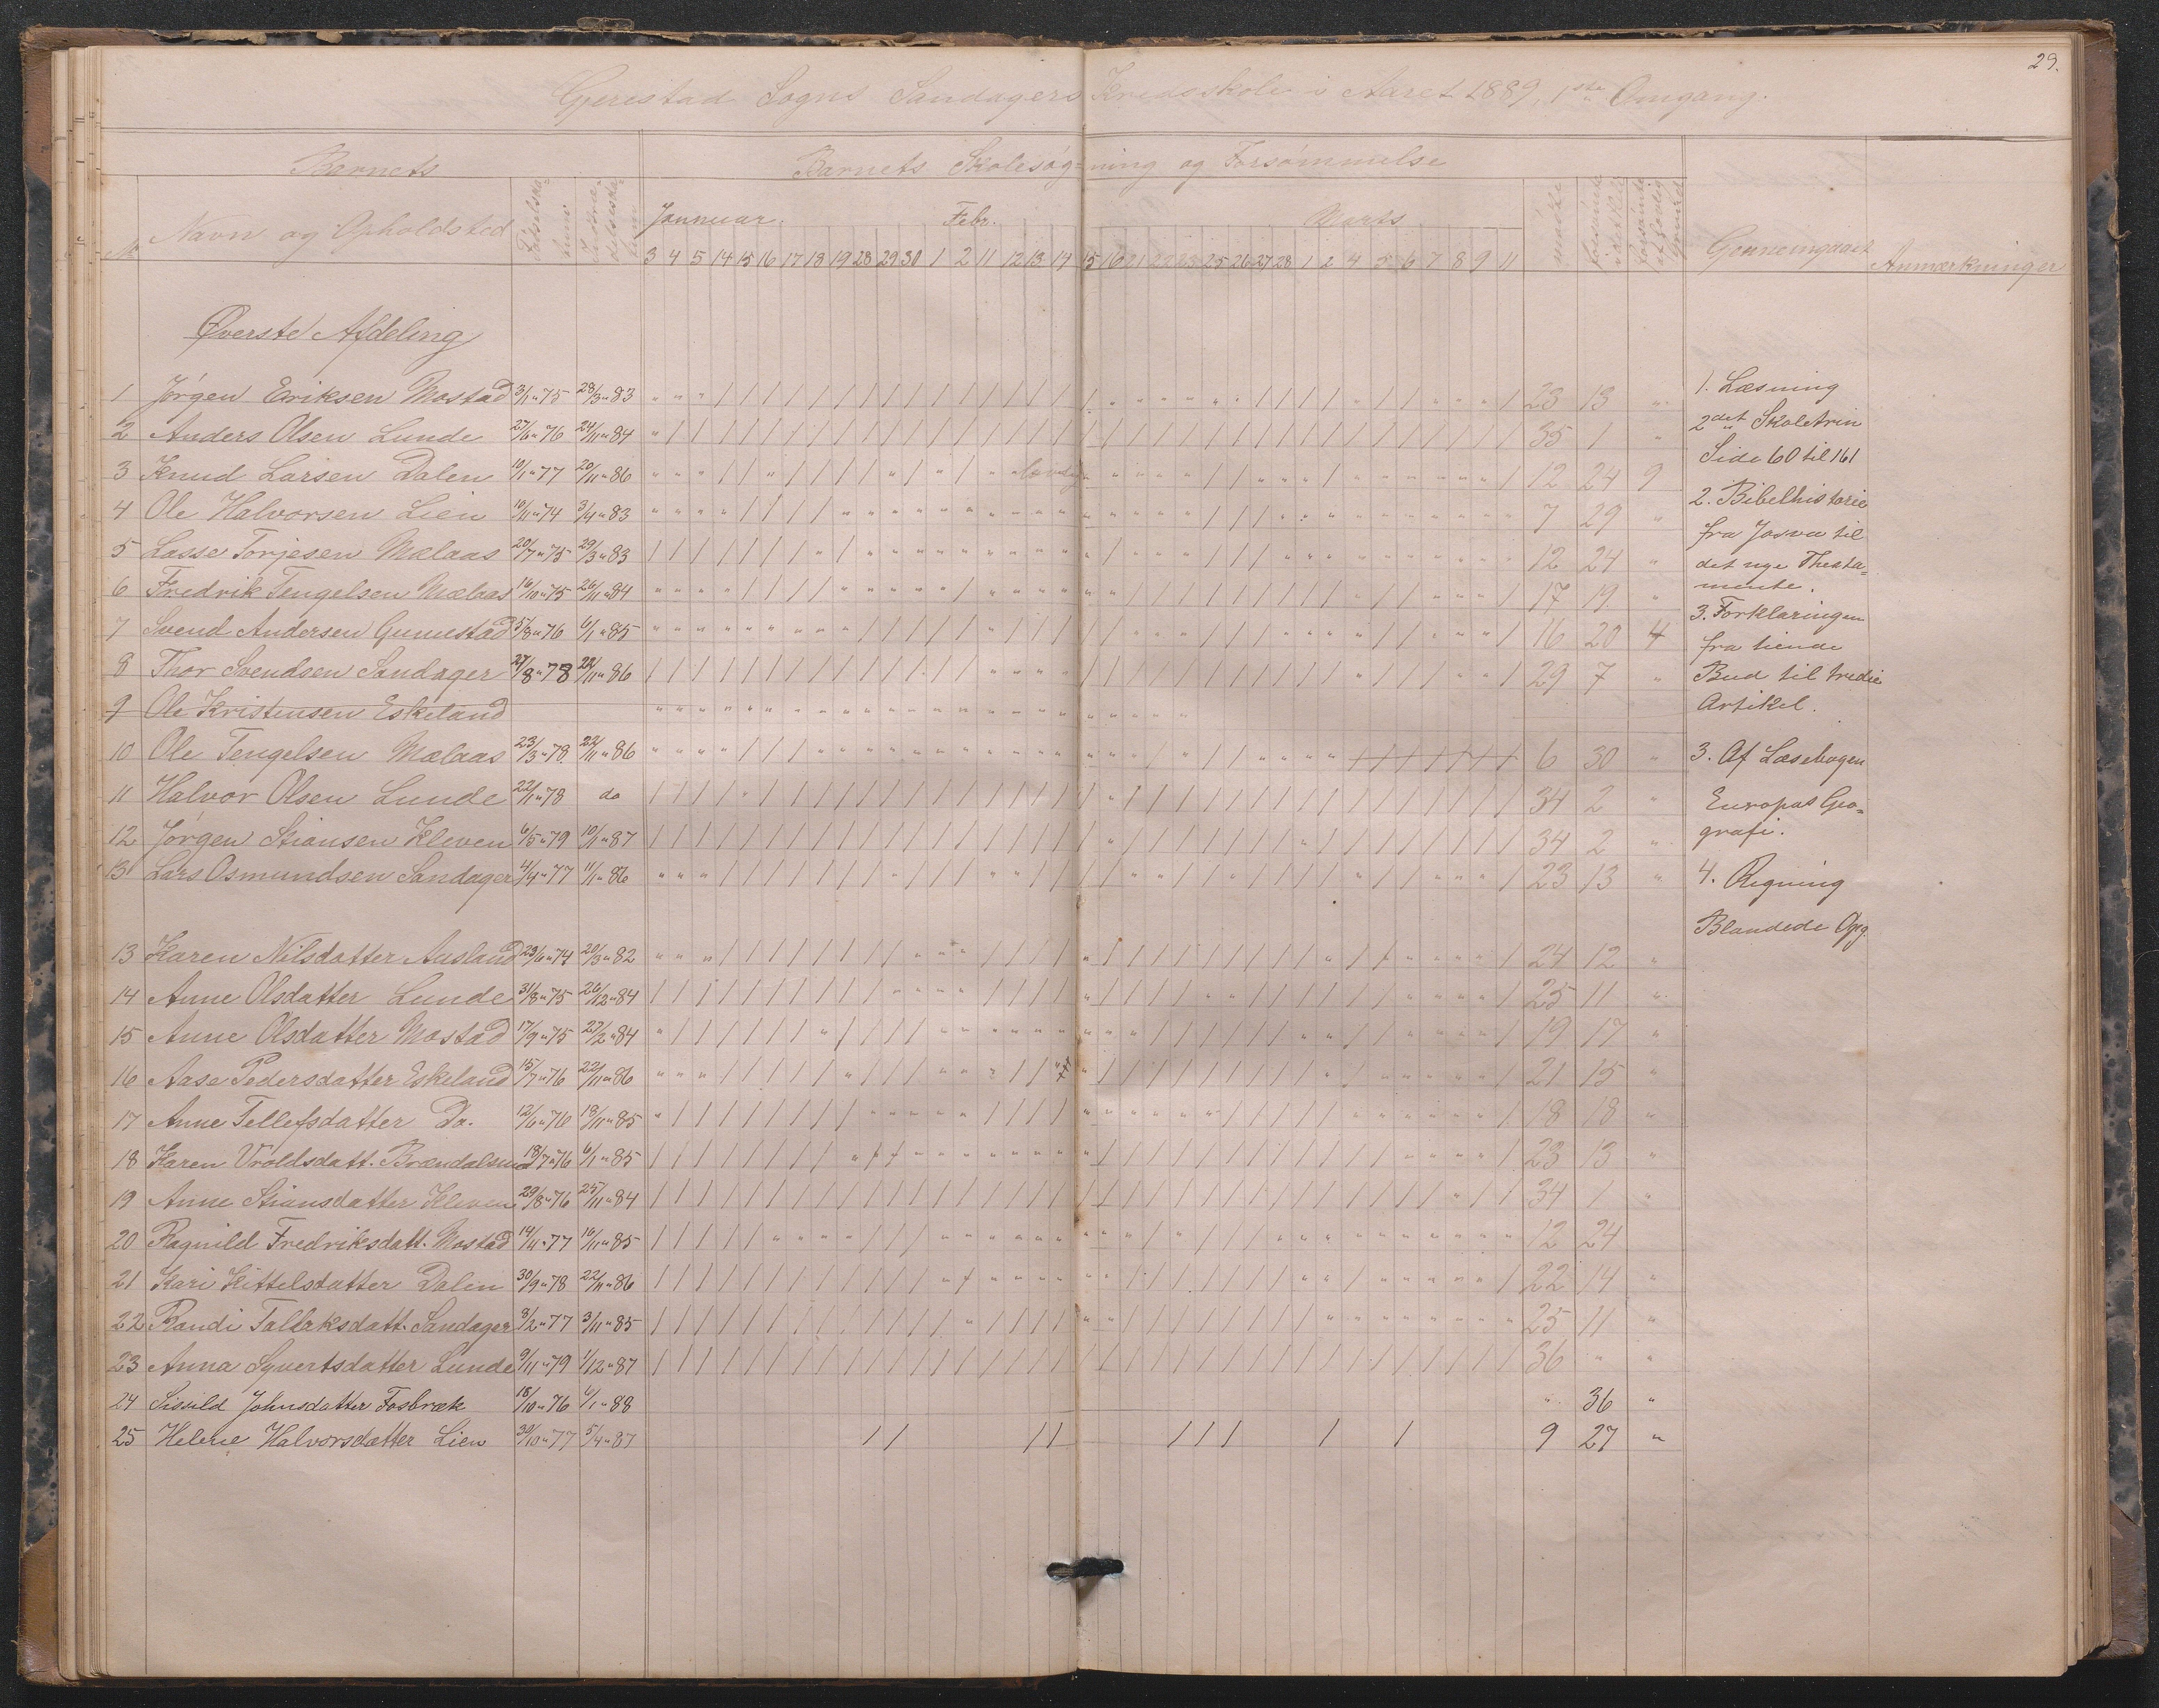 29.
Gjerestad Sogns Sandagers Kredsskole i Aaret 1889, 1ste Omgang.
Barnets Barnets Skolesøg=ning og Forsømmelse
No Navn og Opholdsted Januuar. Febr. Marts Gennemgaaet Anmærkninger
3 4 5 14 15 16 17 18 19 28 29 30 1 2 11 12 13 14 15 16 21 22 23 25 26 27 28 1 2 4 5 6 7 8 9 11
Øverste Afdeling
1 Jørgen Eriksen Mostad 3/1 " 75 28/3 " 83 23 13 "
2 Anders Olsen Lunde 27/6 " 76 24/11 " 84 35 1 "
3 Knud Larsen Dalen 10/1 " 77 20/11 " 86 12 24 9
4 Ole Halvorsen Lien 10/11 " 74 3/4 " 83 7 29 "
5 Lasse Torjesen Mælaas 20/7 " 75 29/3 " 83 12 24 "
6 Fredrik Tengelsen Mælaas 16/10 " 75 26/11 " 84 17 19 "
7 Svend Andersen Gumestad 5/8 " 76 6/1 " 85 16 20 4
8 Thor Svendsen Sandager 27/8 " 78 22/11 " 86 29 7 "
9 Ole Kristensen Eskeland
10 Ole Tengelsen Mælaas 23/3 " 78 22/11 " 86 6 30 "
11 Halvor Olsen Lunde 22/11 " 78 do 34 2 "
12 Jørgen Stiansen Kleven 6/5 " 79 10/1 " 87 34 2 "
13 Lars Osmundsen Sandager 4/4 " 77 11/1 " 86 23 13 "
13 Karen Nilsdatter Ausland 23/6 " 74 20/3 " 82 24 12 "
14 Anne Olsdatter Lunde 31/8 " 75 26/12 " 84 25 11 "
15 Anne Olsdatter Mostad 17/9 " 75 27/2 " 84 19 17 "
16 Aase Pedersdatter Eskeland 15/7 " 76 22/11 " 86 21 15 "
17 Anne Tellefsdatter Do. 12/6 " 76 18/11 " 85 18 18 "
18 Karen Vroldsdatt. Brændalsmo 18/7 " 76 6/1 " 85 23 13 "
19 Anne Stiansdatter Kleven 29/8 " 76 25/11 " 84 34 1 "
20 Ragnild Fredriksdatt. Mostad 14/11 " 77 16/11 " 85 12 24
21 Kari Kittelsdatter Dalen 30/9 " 78 22/11 " 86 22 14 "
22 Randi Tallaksdatt. Sandager 8/2 " 77 3/11 " 85 25 11 "
23 Anna Syvertsdatter Lunde 9/11 " 79 1/12 " 87 36 " "
24 Sissild Johnsdatter Fosbræk 18/10 " 76 6/1 " 88 " 36 "
25 Helene Halvorsdatter Lien 30/10 " 77 5/4 " 87 9 27 "
1. Læsning
2det Skoletrin
Side 60 til 161
2. Bibelhistorie
fra Josva til
det nye Theata=
mente.
3. Forklaringen
fra tiende
Bud til tredie
Artikel.
3. Af Læsebogen
Europas Geo=
grafi.
4. Regning
Blandede Opg.